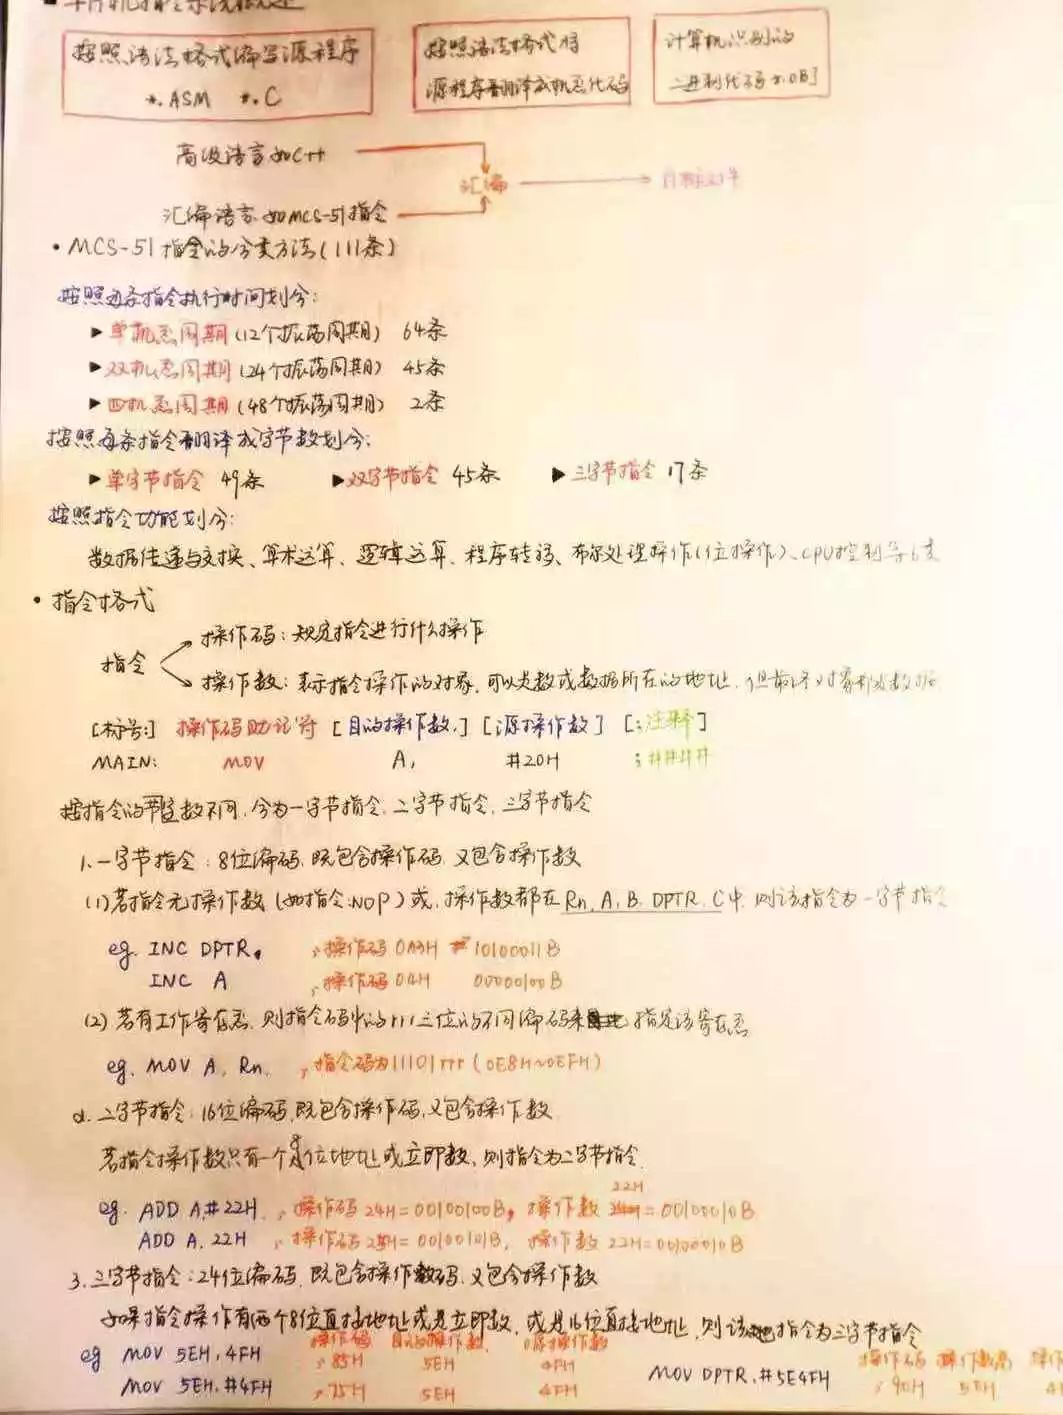 单片机指令系统概述
按照语法格式编写源程序
*.ASM *.C
按照语法格式将
源程序翻译成机器代码
计算机识别的
二进制代码 *.OBJ
高级语言如C++
汇编
目标文件
汇编语言如MCS-51指令
• MCS-51指令的分类方法(111条)
按照每条指令执行时间划分:
▶ 单机器周期(12个振荡周期) 64条
▶ 双机器周期(24个振荡周期) 45条
▶ 四机器周期(48个振荡周期) 2条
按照每条指令翻译成字节数划分:
▶ 单字节指令 49条 ▶双字节指令 45条 ▶ 三字节指令 17条
按照指令功能划分:
数据传递与交换、算术运算、逻辑运算、程序转移、布尔处理操作(位操作)、CPU控制等6类
• 指令格式
操作码: 规定指令进行什么操作
指令
操作数: 表示指令操作的对象, 可以是数或数据所在的地址, 但最终对象都是数据
[标号:] 操作码助记符 [目的操作数,] [源操作数] [;注释]
MAIN: MOV A, #20H ;####
按指令的字节数不同, 分为一字节指令, 二字节指令, 三字节指令
1.一字节指令: 8位编码, 既包含操作码, 又包含操作数
(1)若指令无操作数(如指令:NOP)或, 操作数都在Rn, A, B, DPTR, C中, 则该指令为一字节指令
eg. INC DPTR ;操作码 0A3H 10100011B
INC A ;操作码 04H 00000100B
(2) 若有工作寄存器, 则指令码中的rrr三位的不同编码来指定该寄存器
eg. MOV A, Rn, ;指令码为11101rrr (0E8H~0EFH)
2. 二字节指令: 16位编码, 既包含操作码, 又包含操作数
若指令操作数只有一个8位地址或立即数, 则指令为二字节指令
eg. ADD A,#22H ;操作码 24H=00100100B, 操作数 22H=00100010B
ADD A, 22H ;操作码 25H=00100101B, 操作数 22H=00100010B
3. 三字节指令: 24位编码, 既包含操作码, 又包含操作数
如果指令操作有两个8位直接地址或是立即数, 或是16位直接地址, 则该指令为三字节指令
操作码 目的操作数 源操作数
eg MOV 5EH, 4FH ;85H 5EH 4FH
MOV 5EH, #4FH ;75H 5EH 4FH
操作码 操作数高 操作
MOV DPTR, #5E4FH ;90H 5EH 4